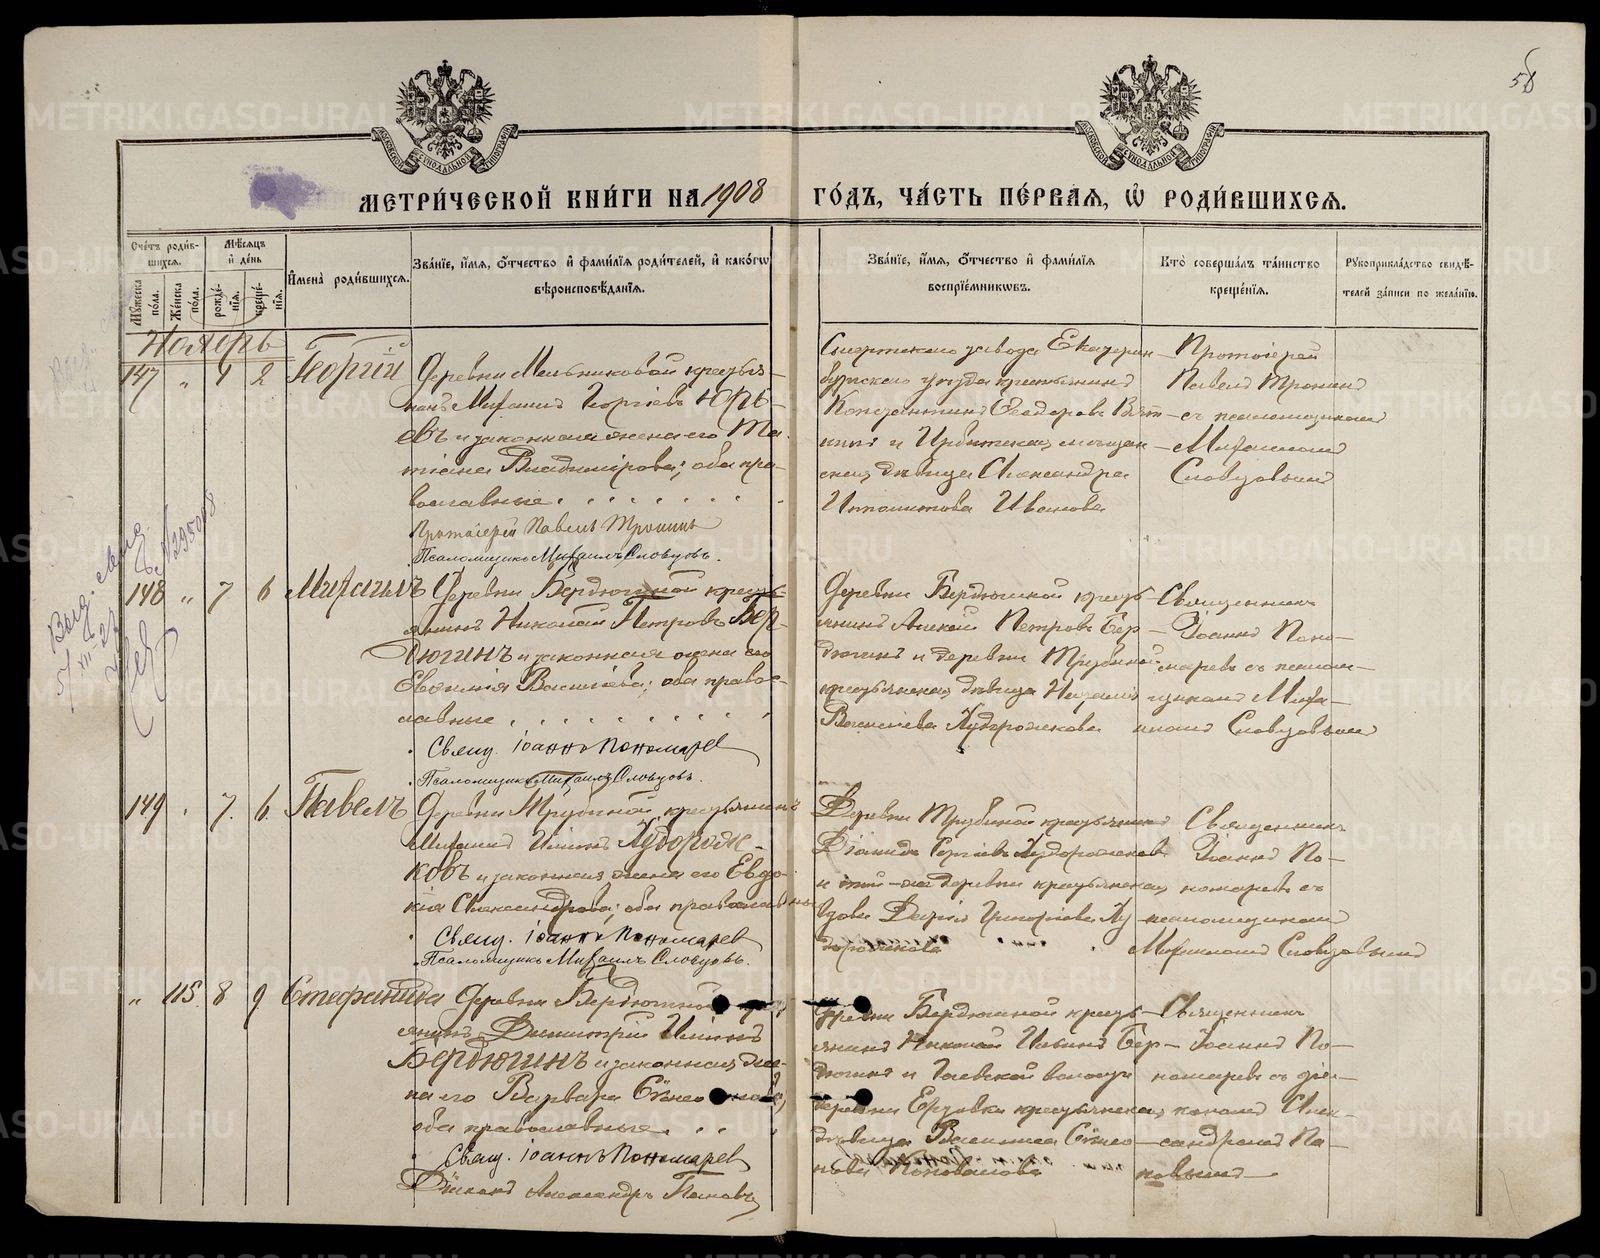 58
МОСКОВСКОЙ СѴНОДАЛЬНОЙ ТИПОГРАФІИ
МОСКОВСКОЙ СѴНОДАЛЬНОЙ ТИПОГРАФІИ
МЕТРИ́ЧЕСКОЙ КНИ́ГИ НА 1908 ГО́ДЪ, ЧА́СТЬ ПЕ́РВАЯ, Ѡ҆ РОДИ́ВШИХСЯ.
Сче́тъ роди́в-
шихся.
Му́жеска по́ла.
Же́нска по́ла.
Мѣ́сяцъ
и҆ де́нь
рожде́-
нїя.
креще́-
нїя.
И҆мена̀ роди́вшихся.
Зва́нїе, и҆́мя, ѻ҆́тчество и҆ фами́лїя роди́телей, и҆ како́гѡ
вѣроисповѣ́данїя.
Зва́нїе, и҆́мя, ѻ҆́тчество и҆ фами́лїя
воспрїе́мникѡвъ.
Кто̀ соверша́лъ та́инство
креще́нїя.
Рꙋкоприкла́дство свидѣ́-
телей за́писи по жела́нїю.
Ноябрь
147 „ 1 2 Георгій
Деревни Мельниковой кресть-
янинъ Михаилъ Георгіевъ Юрь-
евъ и законная жена его Та-
тіана Владимірова; оба пра-
вославные.
Протоіерей Павелъ Тронинъ
Псаломщикъ Михаилъ Словцовъ.
Сысертскаго завода Екатерин-
бургскаго уѣзда крестьянинъ
Константинъ Ѳеодоровъ Вят-
кинъ и Ирбитская мѣщан-
ская дѣвица Александра
Ипполитова Иванова
Протоіерей
Павелъ Тронинъ
съ псаломщикомъ
Михаиломъ
Словцовымъ
148 „ 7 8 Михаилъ
Деревни Бердюгиной кресть-
янинъ Николай Петровъ Бер-
дюгинъ и законная жена его
Евѳимія Васильева; оба право-
славные.
Свящ. Іоаннъ Пономарев
Псаломщикъ Михаилъ Словцовъ.
Деревни Бердюгиной кресть-
янинъ Алексѣй Петровъ Бер-
дюгинъ и деревни Трубиной
крестьянская дѣвица
Васильева Худорожкова
Священникъ
Іоаннъ Поно-
маревъ съ псалом-
щикомъ Миха-
иломъ Словцовымъ
149 „ 7. 8. Павелъ
Деревни Трубиной крестьянинъ
Михаилъ Худорож-
ковъ и законная жена его Евдо-
кія Александрова; оба православные
Свящ. Іоаннъ Пономарев
Псаломщикъ Михаилъ Словцовъ.
Деревни Трубиной крестьянинъ
Сергіевъ Худорожковъ
и той-же деревни крестьянская
вдова Дарія Григоріева Ху-
дорожкова
Священникъ
Іоаннъ По-
номаревъ съ
псаломщикомъ
Михаиломъ Словцовымъ
„ 115. 8 9. Стефанида
Деревни Бердюгиной
янинъ Димитрій
Бердюгинъ и законная же-
на его Варвара
оба православные.
Свящ. Іоаннъ Пономарев
Діаконъ Александръ Пановъ
Деревни Бердюгиной кресть-
янинъ Николай Бер-
дюгинъ и волости
деревни крестьянская
дѣвица
Коновалова
Священникъ
Іоаннъ По-
номаревъ съ діа-
кономъ Алек-
сандромъ Па-
новымъ
Выд. свид.